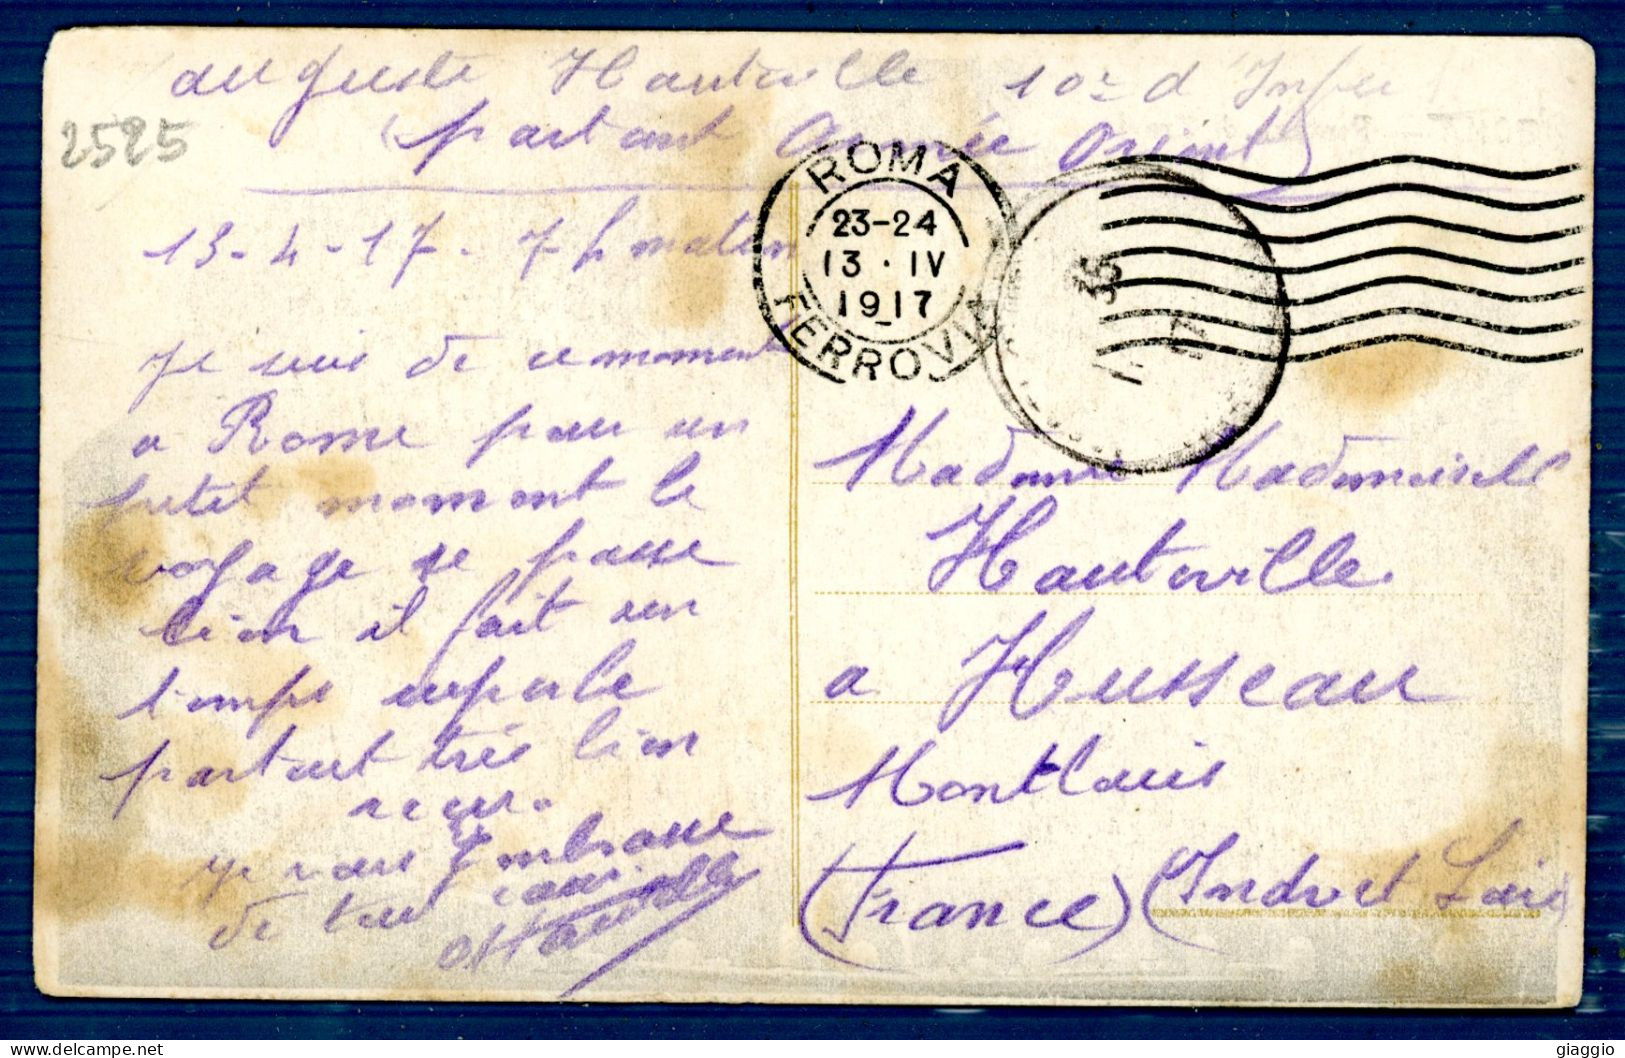 auguste Hauteville 10e d'Infie
(partant Armée Orient)
2525
13-4-17. 7 h matin
ROMA
23-24
13 · IV
1917
FERROVIA
Je suis de ce moment
a Rome pour un
petit moment le
voyage se passe
bien il fait un
temps superbe
partout très bien
reçu.
Je vous Embrasse
de tout cœur
A Hauteville
Madame Mademoiselle
Hauteville
a Husseau
Montlouis
(France) (Indre et Loire)
delcampe.net
giaggio